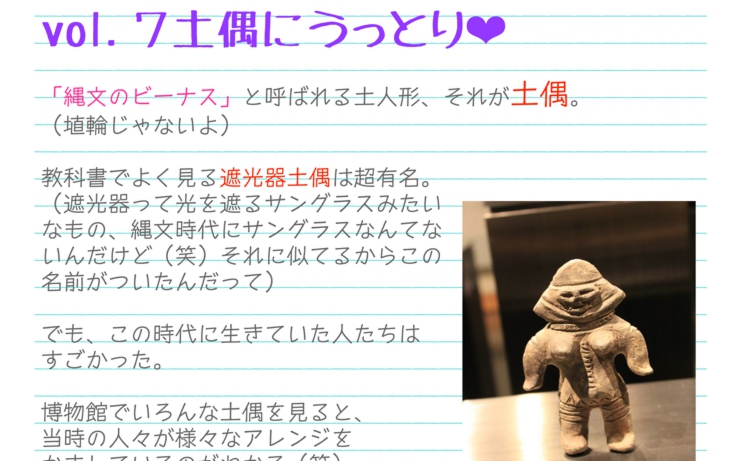 vol.７土偶にうっとり❤
「縄文のビーナス」と呼ばれる土人形、それが土偶。
（埴輪じゃないよ）
教科書でよく見る遮光器土偶は超有名。
（遮光器って光を遮るサングラスみたい
なもの、縄文時代にサングラスなんてな
いんだけど（笑）それに似てるからこの
名前がついたんだって）
でも、この時代に生きていた人たちは
すごかった。
博物館でいろんな土偶を見ると、
当時の人々が様々なアレンジを
かましているのがわかる（笑）